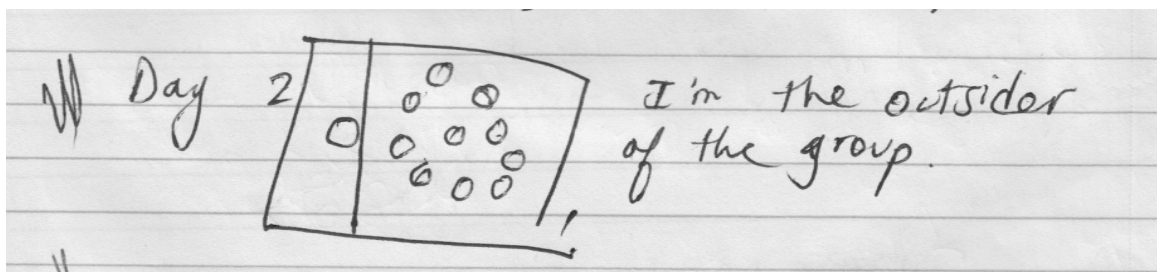 Day 2 I'm the outsider
of the group.